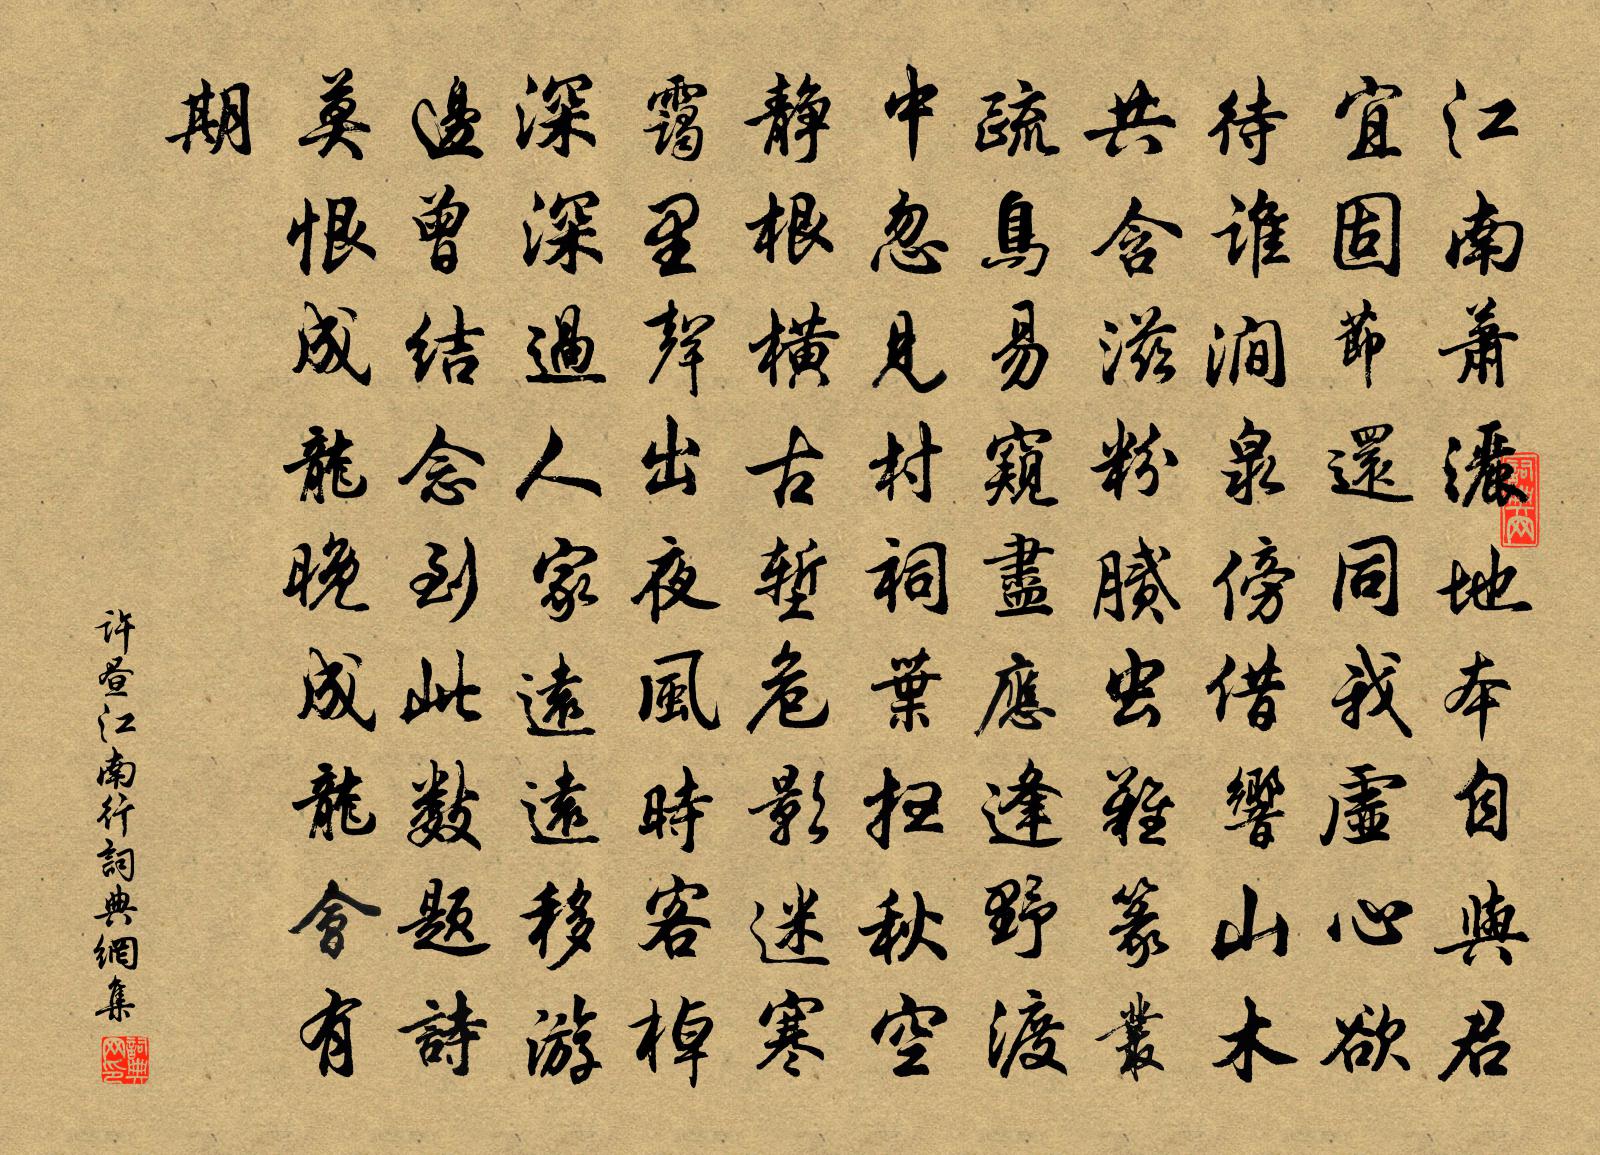 江南蕭灑地本自與君
宜固節還同我虛心欲
待誰澗泉傍借響山木
共含滋粉膩虫難篆叢
疏鳥易窺盡應逢野渡
中忽見村祠葉扫秋空
静根横古塹危影迷寒
靄里聲出夜風時客棹
深深過人家遠遠移游
邊曾結念到此數题詩
莫恨成龍晚成龍會有
期
許晝江南行詞典網集